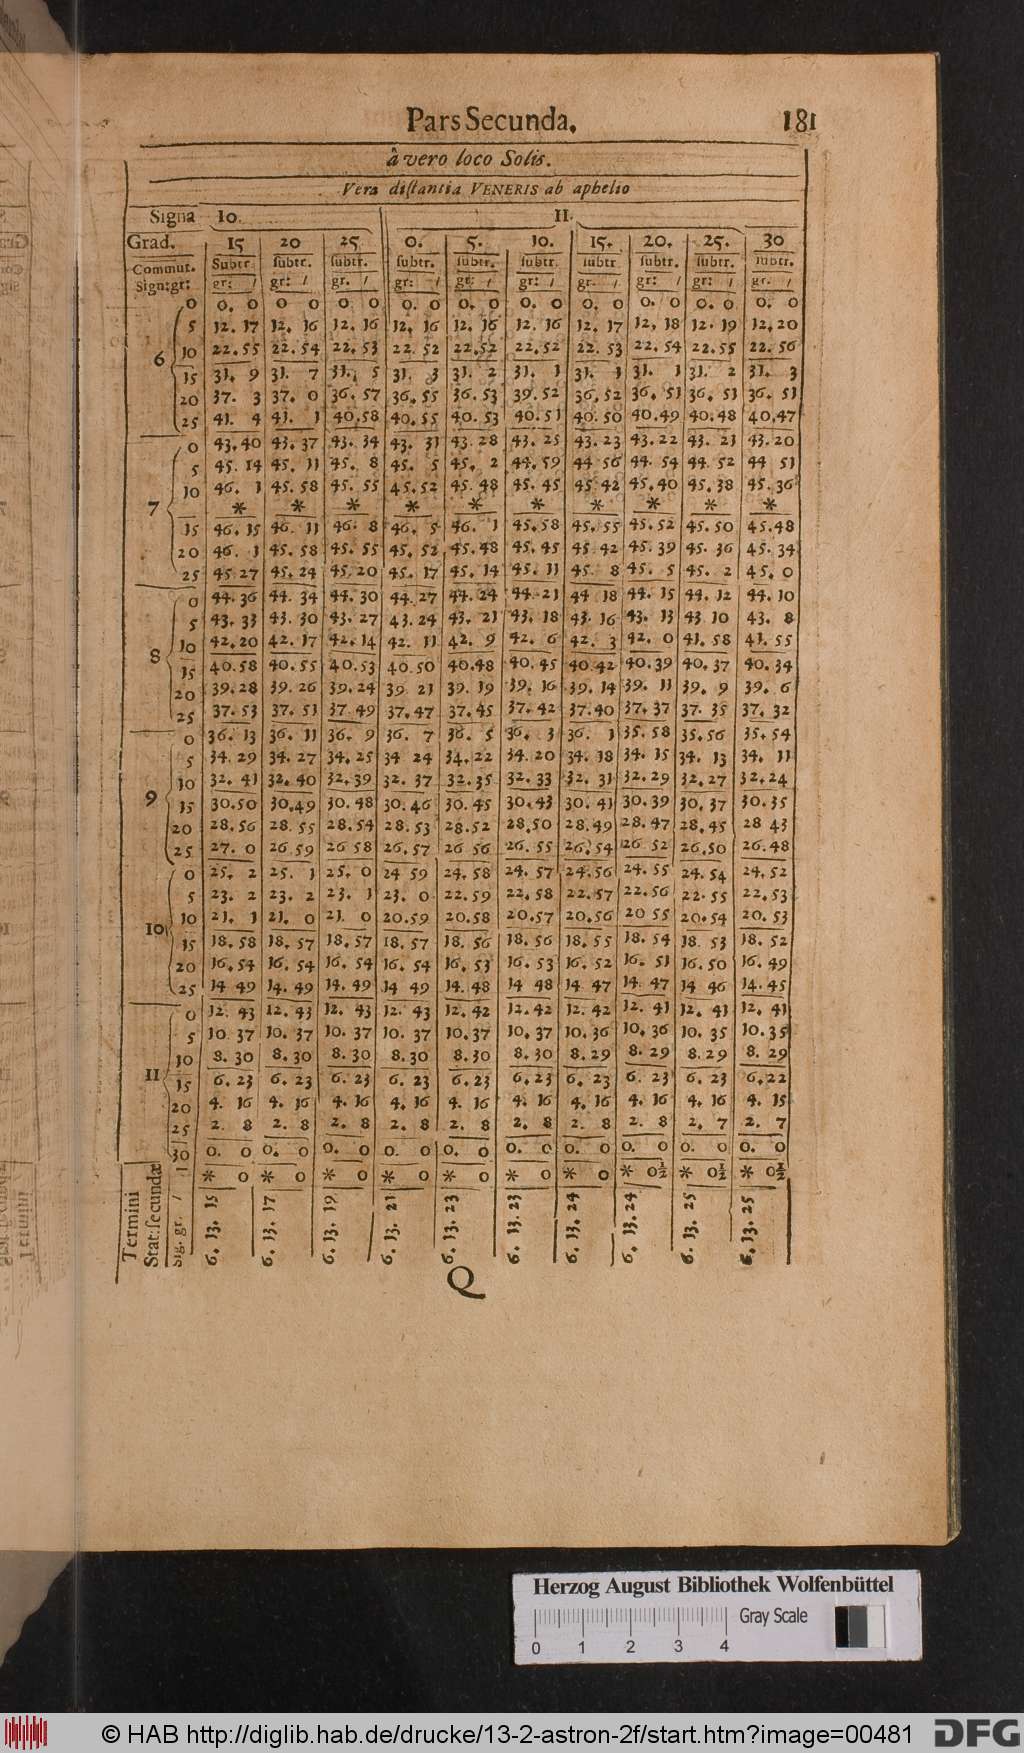 Pars Secunda. 181
à vero loco Solis.
Vera distantia VENERIS ab aphelio
Signa 10. 11.
Grad. 15 20 25. 0. 5. 10. 15. 20. 25. 30
Commut. Subtr. subtr. subtr. subtr. subtr. subtr. subtr. subtr. subtr. subtr.
Sign:gr: gr: / gr: / gr. / gr: / gr: / gr: / gr. / gr. / gr. / gr. /
0 0. 0 0 0 0. 0 0. 0 0. 0 0. 0 0. 0 0. 0 0. 0 0. 0
5 12. 17 12. 16 12. 16 12. 16 12. 16 12. 16 12. 17 12. 18 12. 19 12. 20
6 10 22. 55 22. 54 22. 53 22. 52 22. 52 22. 52 22. 53 22. 54 22. 55 22. 56
15 31. 9 31. 7 31. 5 31. 3 31. 2 31. 1 31. 1 31. 1 31. 2 31. 3
20 37. 3 37. 0 36. 57 36. 55 36. 53 39. 52 36. 52 36. 51 36. 51 36. 51
25 41. 4 41. 1 40. 58 40. 55 40. 53 40. 51 40. 50 40. 49 40. 48 40. 47
0 43. 40 43. 37 43. 34 43. 31 43. 28 43. 25 43. 23 43. 22 43. 21 43. 20
5 45. 14 45. 11 45. 8 45. 5 45. 2 44. 59 44 56 44. 54 44. 52 44 51
10 46. 1 45. 58 45. 55 45. 52 45. 48 45. 45 45 42 45. 40 45. 38 45. 36
7 * * * * * * * * * *
15 46. 15 46. 11 46. 8 46. 5 46. 1 45. 58 45. 55 45. 52 45. 50 45. 48
20 46. 1 45. 58 45. 55 45. 52 45. 48 45. 45 45 42 45. 39 45. 36 45. 34
25 45 27 45. 24 45. 20 45. 17 45. 14 45. 11 45. 8 45. 5 45. 2 45. 0
0 44. 36 44. 34 44. 30 44. 27 44. 24 44. 21 44 18 44. 15 44. 12 44. 10
5 43. 33 43. 30 43. 27 43. 24 43. 21 43. 18 43. 16 43. 13 43 10 43. 8
8 10 42. 20 42. 17 42. 14 42. 11 42. 9 42. 6 42. 3 42. 0 41. 58 41. 55
15 40. 58 40. 55 40. 53 40. 50 40. 48 40. 45 40 42 40. 39 40. 37 40. 34
20 39. 28 39. 26 39. 24 39 21 39. 19 39. 16 39. 14 39. 11 39. 9 39. 6
25 37. 53 37. 51 37 49 37. 47 37. 45 37. 42 37. 40 37. 37 37. 35 37. 32
0 36. 13 36. 11 36. 9 36. 7 36. 5 36. 3 36. 1 35. 58 35. 56 35. 54
5 34. 29 34. 27 34. 25 34 24 34. 22 34. 20 34. 18 34. 15 34. 13 34. 11
10 32. 41 32. 40 32. 39 32. 37 32. 35 32. 33 32. 31 32. 29 32. 27 32. 24
9 15 30. 50 30. 49 30. 48 30. 46 30. 45 30. 43 30. 41 30. 39 30. 37 30. 35
20 28. 56 28. 55 28. 54 28. 53 28. 52 28. 50 28. 49 28. 47 28. 45 28 43
25 27. 0 26. 59 26 58 26. 57 26 56 26. 55 26. 54 26 52 26. 50 26. 48
0 25. 2 25. 1 25. 0 24 59 24. 58 24. 57 24. 56 24. 55 24. 54 24. 52
5 23. 2 23. 2 23. 1 23. 0 22. 59 22. 58 22. 57 22. 56 22. 55 22. 53
10 21. 1 21. 0 21. 0 20. 59 20. 58 20. 57 20. 56 20 55 20. 54 20. 53
10 15 18. 58 18. 57 18. 57 18. 57 18. 56 18. 56 18. 55 18. 54 18. 53 18. 52
20 16. 54 16. 54 16. 54 16. 54 16. 53 16. 53 16. 52 16. 51 16. 50 16. 49
25 14 49 14. 49 14. 49 14 49 14. 48 14 48 14 47 14. 47 14 46 14. 45
0 12. 43 12. 43 12. 43 12. 43 12. 42 12. 42 12. 42 12. 41 12. 41 12. 41
5 10 37 10. 37 10. 37 10. 37 10. 37 10. 37 10. 36 10. 36 10. 35 10. 35
10 8. 30 8. 30 8. 30 8. 30 8. 30 8. 30 8. 29 8. 29 8. 29 8. 29
11 15 6. 23 6. 23 6. 23 6. 23 6. 23 6. 23 6. 23 6. 23 6. 23 6. 22
20 4. 16 4. 16 4. 16 4. 16 4. 16 4. 16 4. 16 4. 16 4. 16 4. 15
25 2. 8 2. 8 2. 8 2. 8 2. 8 2. 8 2. 8 2. 8 2. 7 2. 7
30 0. 0 0. 0 0. 0 0. 0 0. 0 0. 0 0. 0 0. 0 0. 0 0. 0
* 0 * 0 * 0 * 0 * 0 * 0 * 0 * 0½ * 0½ * 0½
Termini
Stat: secundæ
Sig. gr. / 6. 13. 15 6. 13. 17 6. 13. 19 6. 13. 21 6. 13. 23 6. 13. 23 6. 13. 24 6. 13. 24 6. 13. 25 6. 13. 25
Q
Herzog August Bibliothek Wolfenbüttel
Gray Scale
0 1 2 3 4
© HAB http://diglib.hab.de/drucke/13-2-astron-2f/start.htm?image=00481 DFG